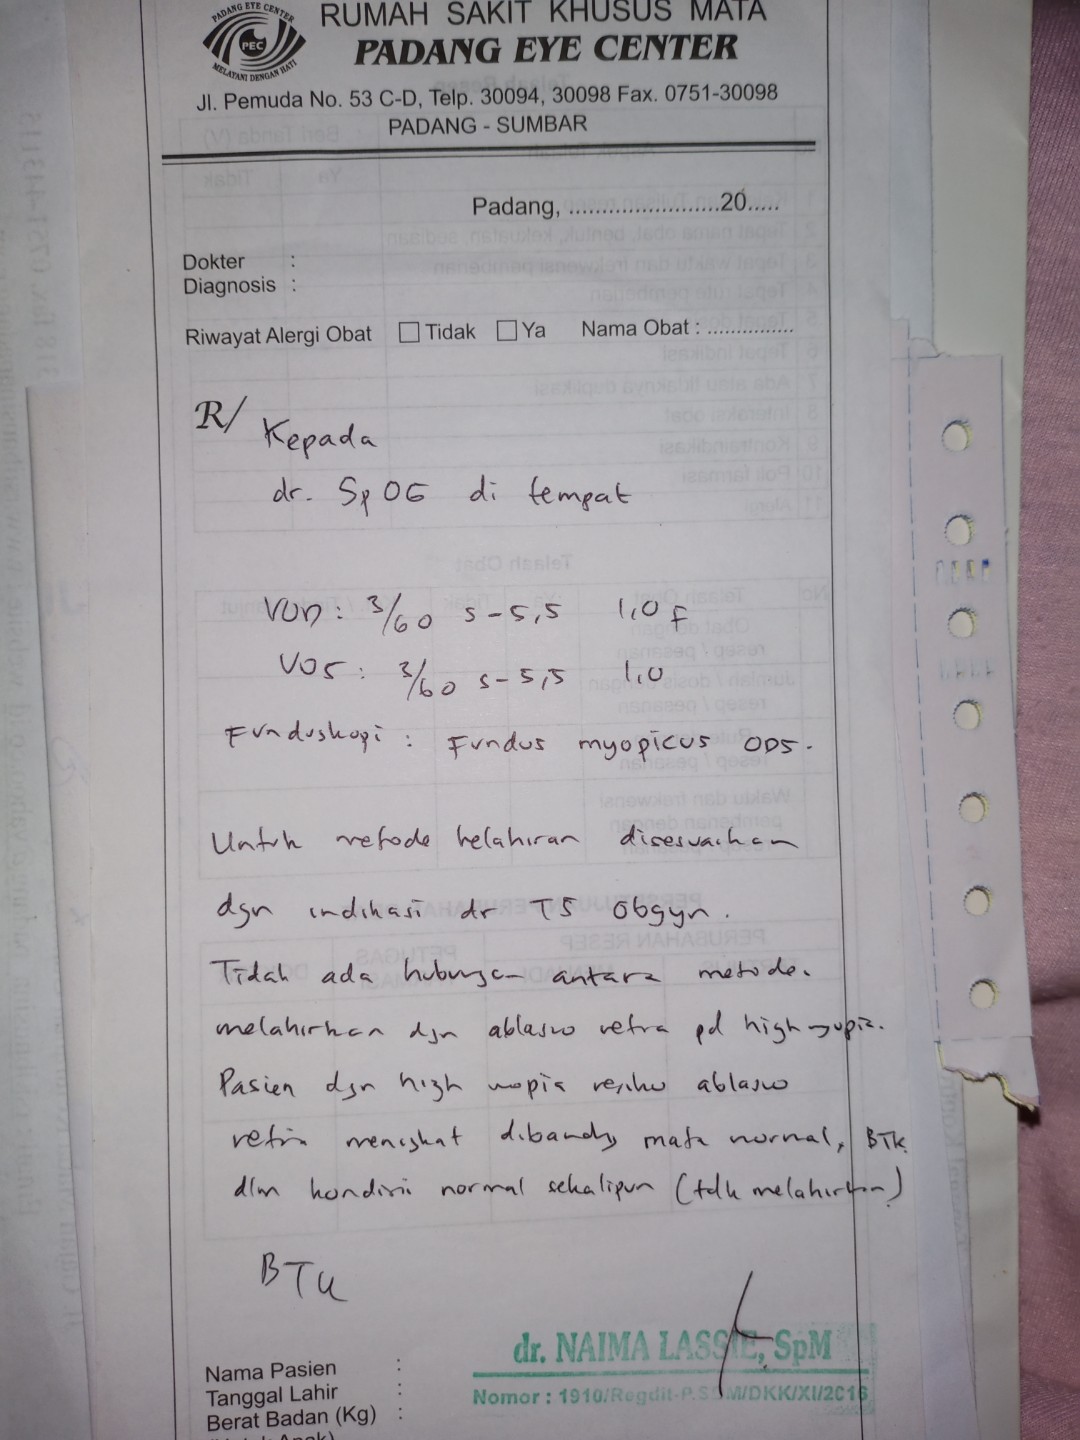 PADANG EYE CENTER
PEC
MELAYANI DENGAN HATI
RUMAH SAKIT KHUSUS MATA
PADANG EYE CENTER
Jl. Pemuda No. 53 C-D, Telp. 30094, 30098 Fax. 0751-30098
PADANG - SUMBAR
Padang, .......................20.....
Dokter :
Diagnosis :
Riwayat Alergi Obat ☐ Tidak ☐ Ya Nama Obat : ...............
R/ Kepada
dr. SpOG di tempat
VOD : 3/60 S-5,5 1,0 F
VOS : 3/60 S-5,5 1,0
Funduskopi : Fundus myopicus ODS.
Untuk metode kelahiran disesuaikan
dgn indikasi dr TS Obgyn.
Tidak ada hubungan antara metode
melahirkan dgn ablasio retina pd high myopia.
Pasien dgn high myopia resiko ablasio
retina meningkat dibanding mata normal, BTK
dlm kondisi normal sekalipun (tdk melahirkan)
BTK
dr. NAIMA LASSIE, SpM
Nomor : 1910/Regdit-P.SDM/DKK/XI/2016
Nama Pasien :
Tanggal Lahir :
Berat Badan (Kg) :